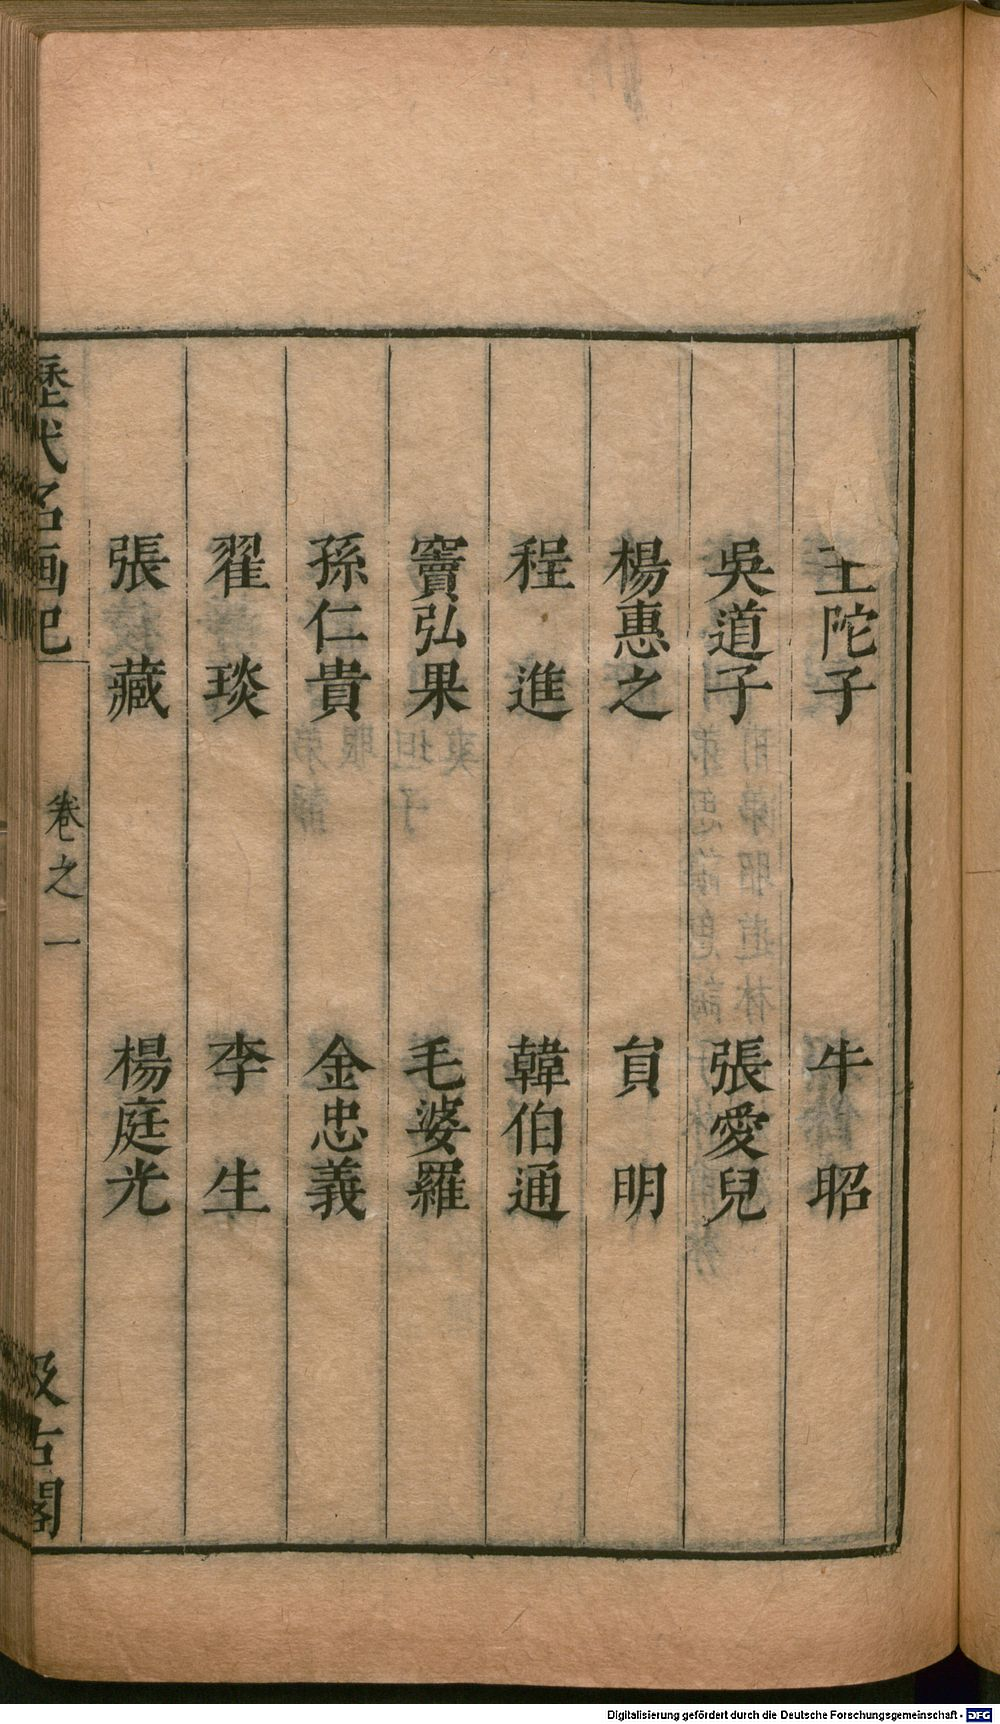 王陀子　牛昭
吳道子　張愛兒
楊惠之　貟明
程進　韓伯通
竇弘果　毛婆羅
孫仁貴　金忠義
翟琰　李生
張藏　楊庭光
歷代名画記　卷之一　汲古閣
Digitalisierung gefördert durch die Deutsche Forschungsgemeinschaft - DFG